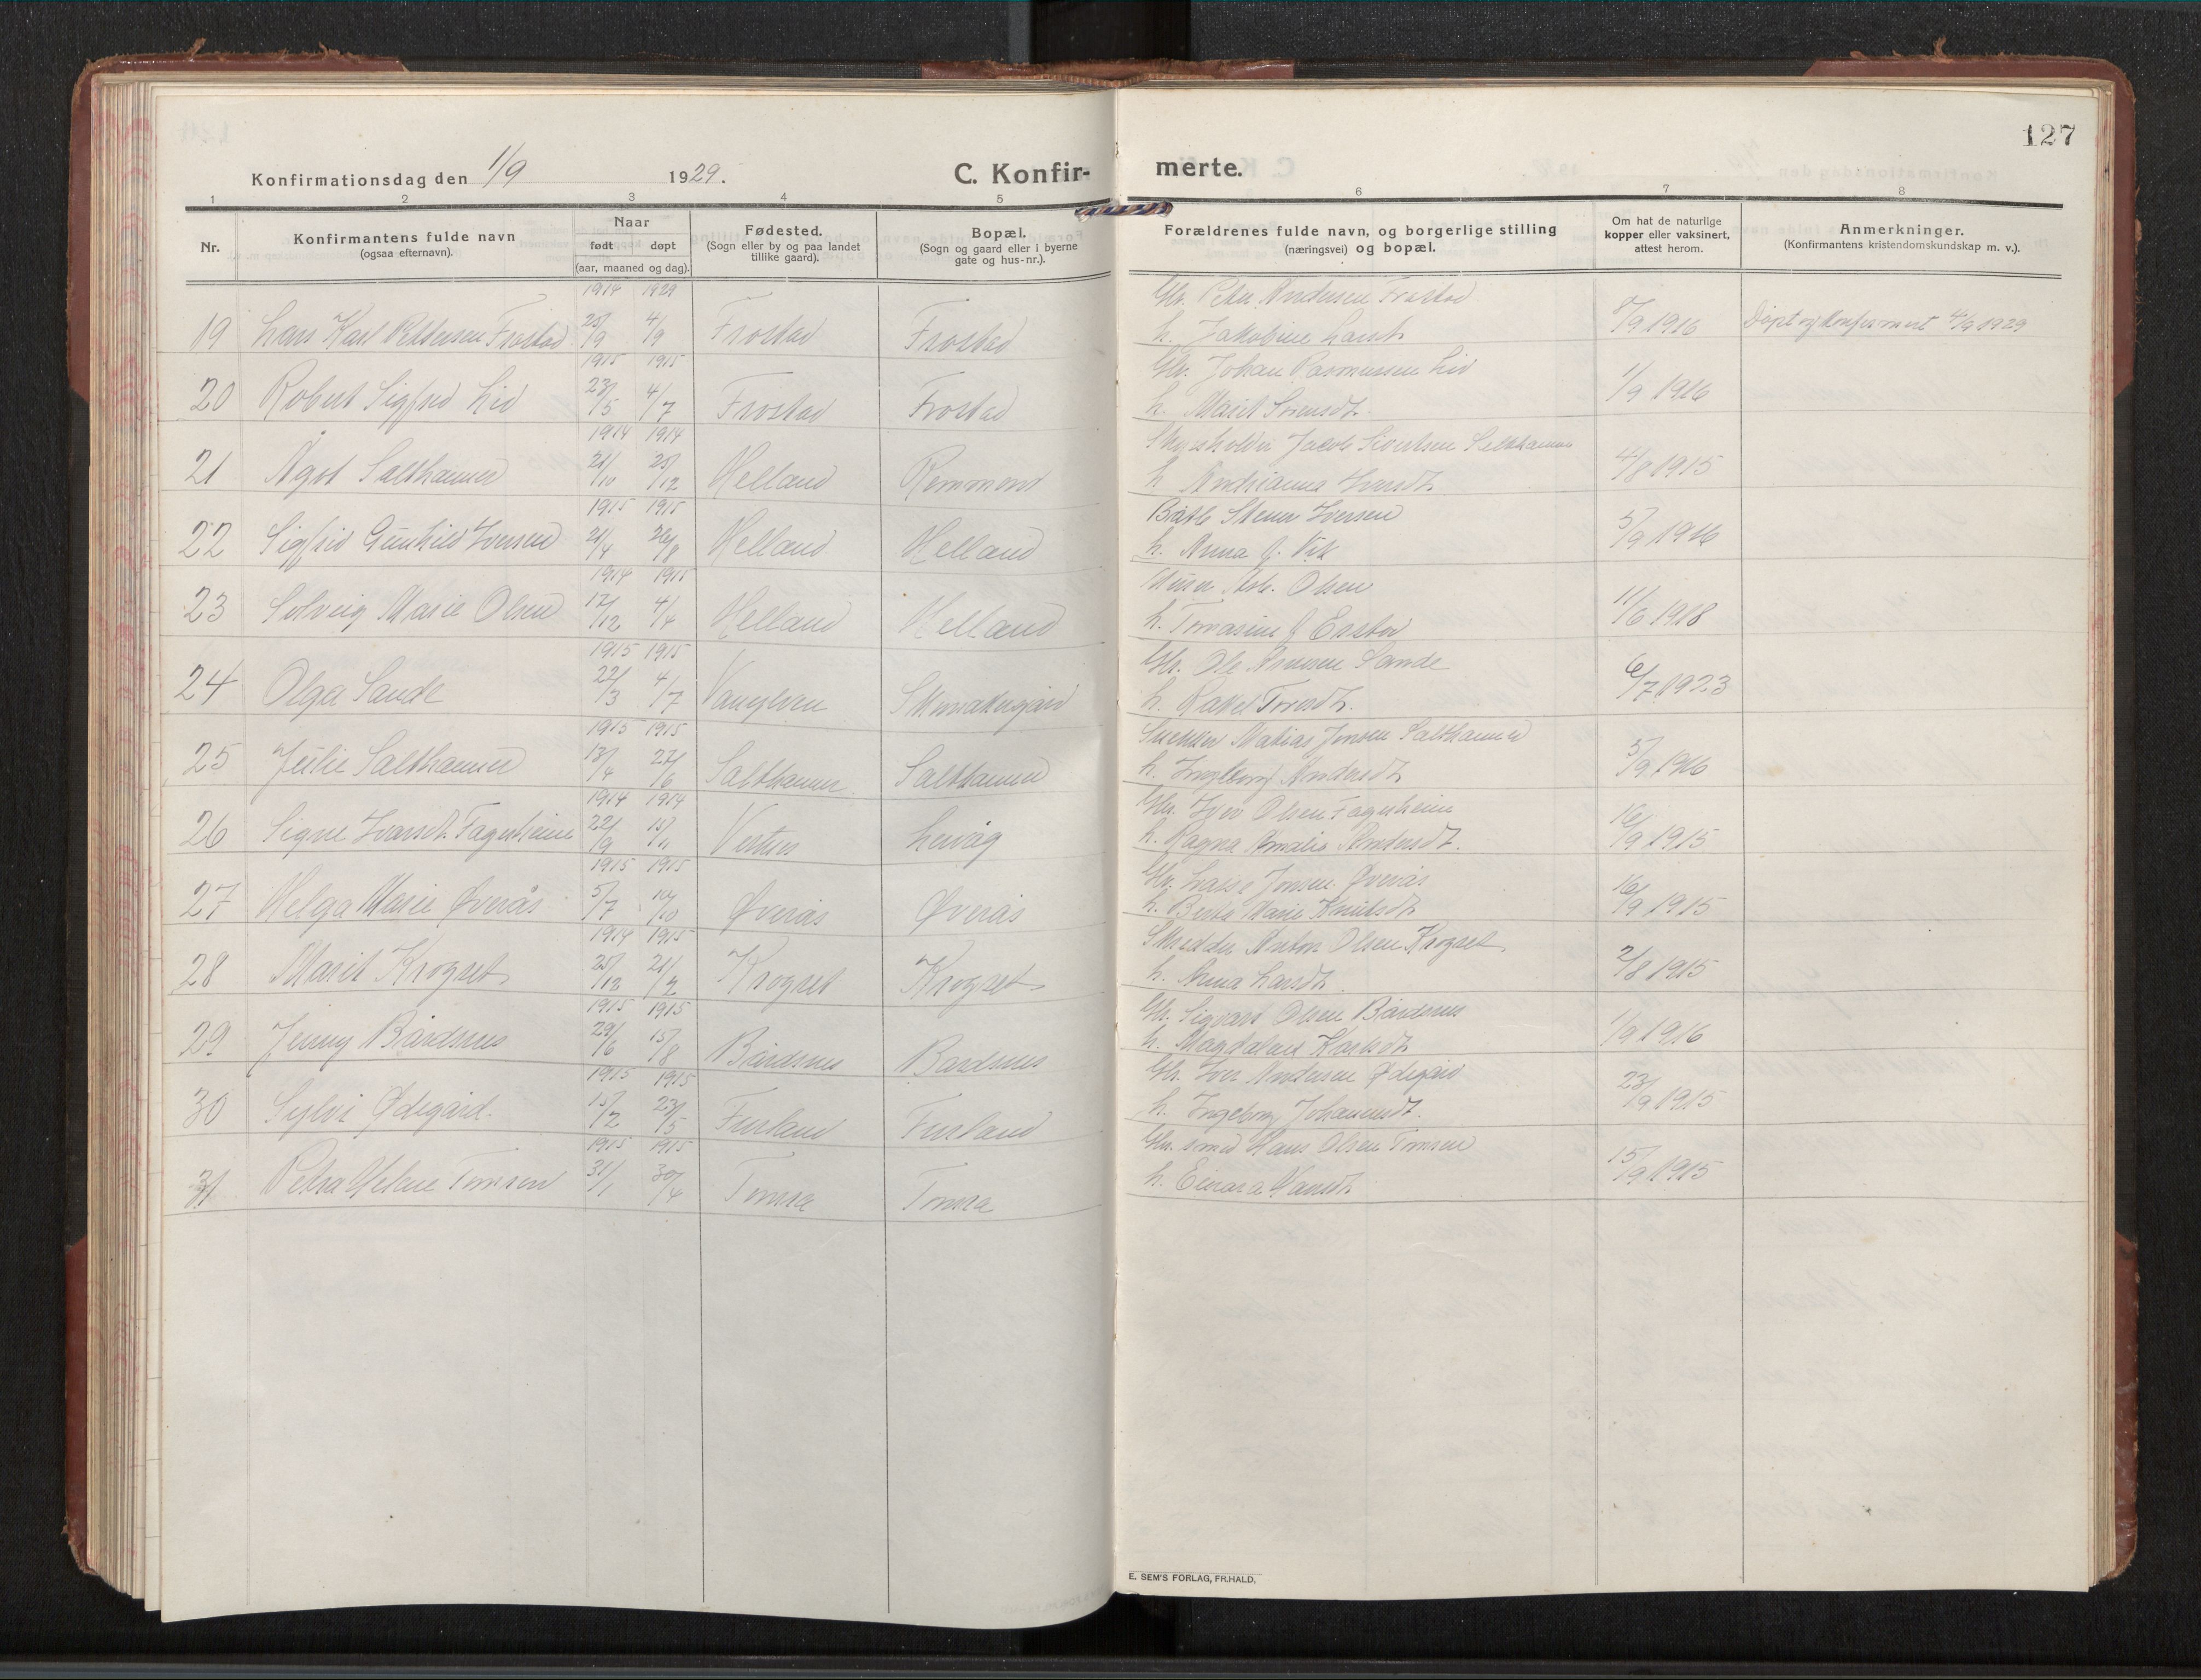 127
Konfirmationsdag den 1/9 1929.
C. Konfir-
merte.
1 2 3 4 5 6 7 8
Nr.
Konfirmantens fulde navn
(ogsaa efternavn).
Naar
født døpt
(aar, maaned og dag).
Fødested.
(Sogn eller by og paa landet
tillike gaard).
Bopæl.
(Sogn og gaard eller i byerne
gate og hus-nr.).
Forældrenes fulde navn, og borgerlige stilling
(næringsvei) og bopæl.
Om hat de naturlige
kopper eller vaksinert,
attest herom.
Anmerkninger.
(Konfirmantens kristendomskundskap m. v.).
1914 1929 Gbr. Peter Andersen Frostad
19 Lars Karl Pettersen Frostad 25/9 4/9 Frostad Frostad h. Jakobine Larsdt. 8/9 1916 Døpt og konfirmert 4/9 1929
1915 1915 Gbr. Johan Rasmussen Lid
20 Robert Sigfred Lid 23/5 4/7 Frostad Frostad h. Marit Sørensdt. 1/9 1916
1914 1914 Skysholder Jacob Sivertsen Salthammer
21 Ågot Salthammer 21/10 25/12 Helland Remmem h. Andrianna Iversdt. 4/8 1915
1915 1915 Iversen
22 Sigfrid Gunhild Iversen 21/4 26/8 Helland Helland h. Anna J. Vik 5/9 1916
1914 1915 Olsen
23 Solveig Marie Olsen 17/12 4/4 Helland Helland h. Tomasine J. 11/6 1918
1915 1915 Gbr. Ole Sande
24 Olga Sande 22/3 4/7 Vanylven h. Rakel 6/7 1923
1915 1915 Snekker Matias Jensen Salthammer
25 Julie Salthammer 18/4 27/6 Salthammer Salthammer h. Ingeborg Andersdt. 5/9 1916
1914 1914 Gbr. Iver Olsen Fagerheim
26 Signe Iversdt. Fagerheim 22/9 15/11 Vestnes Leirvåg h. Ragna Amalie Andersdt. 16/9 1915
1915 1915 Gbr. Lasse Jonsen Øverås
27 Helga Marie Øverås 5/7 10/10 Øverås Øverås h. Berta Marie Knutsdt. 16/9 1915
1914 1915 Skredder Anton Olsen Krogset
28 Marit Krogset 25/12 21/2 Krogset Krogset h. Anna Larsdt. 2/8 1915
1915 1915 Gbr. Sigvard Olsen Bårdsnes
29 Jenny Bårdsnes 29/6 15/8 Bårdsnes Bårdsnes h. Magdalene Karlsdt. 1/9 1916
1915 1915 Gbr. Iver Andersen Ødegård
30 Sylvi Ødegård. 15/2 23/5 Furland Furland h. Ingeborg Johannesdt. 23/9 1915
1915 1915 Gbr. smed Hans Olsen Tomren
31 Petra Helene Tomren 31/1 30/4 Tomra Tomra h. Einara Hansdt. 15/9 1915
E. SEM'S FORLAG, FR.HALD.